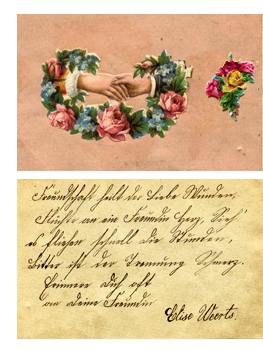 Freundschaft heilt der Liebe Wunden,
Flüchte an ein Freundin Herz, Doch
es fliehen schnell die Stunden,
Bitter ist der Trennung Schmerz.
Erinnere Dich oft
an Deine Freundin
Elise Weerts.